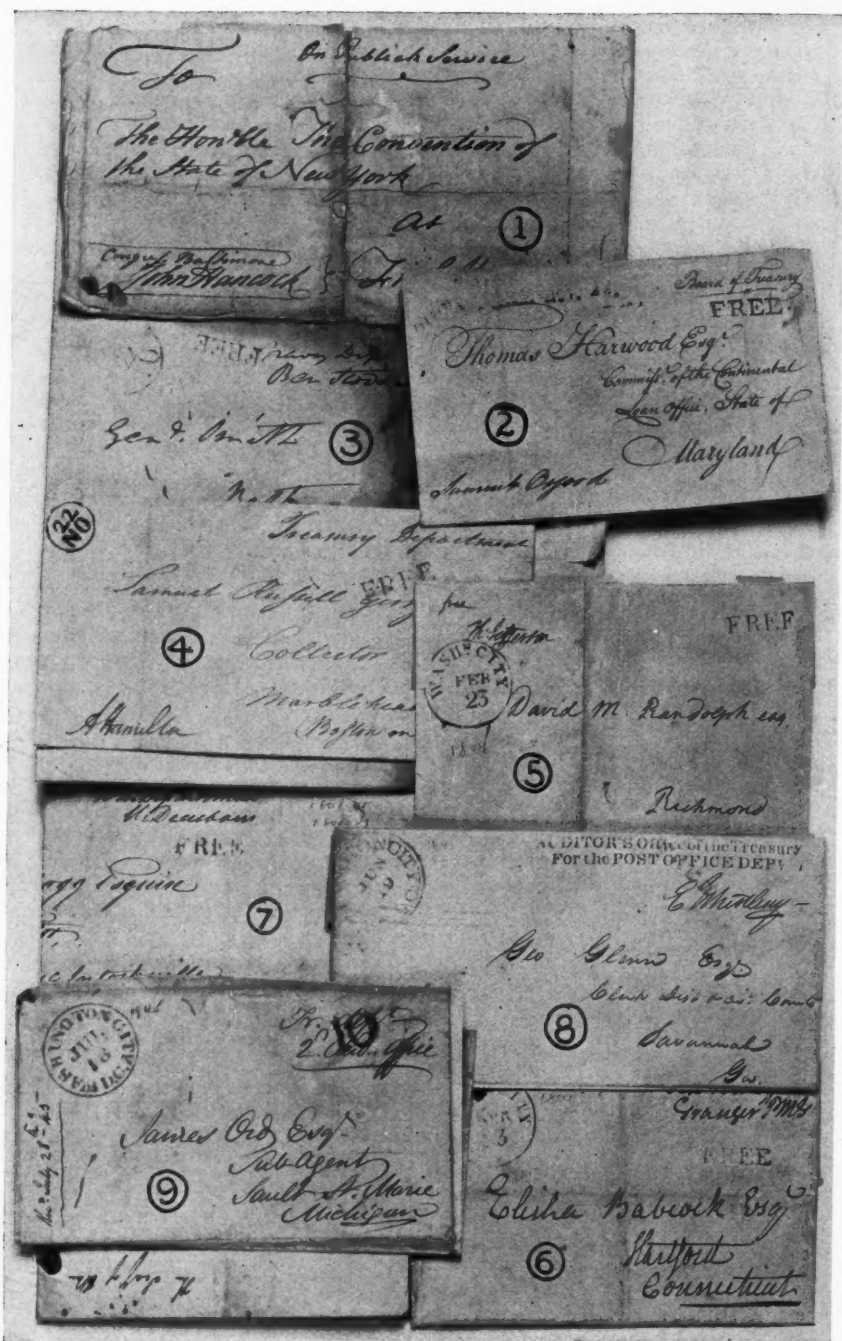 On Publick Service
To
The Hon'ble The Convention of
the State of New York
At
Congress Baltimore
John Hancock
1
Board of Treasury
FREE
Thomas Harwood Esqr.
Commissr. of the Continental
Loan Office, State of
Maryland
Samuel Osgood
2
FREE
Navy Dep
Ben Stod
Genl. Smith
3
22
NO
Treasury Department
FREE
Samuel Russell Esq
Collector
Marblehead
Boston
A Hamilton
4
free
Th: Jefferson
FREE
WASHN. CITY
FEB
23
David M. Randolph esq.
5
Richmond
H. Dearborn
FREE
Esquire
7
AUDITOR'S Office of the Treasury
For the POST OFFICE DEPT.
JUL
E Whittlesey
Geo Glenn Esqr
Clerk
8
Savannah
Geo.
WASHINGTON CITY
JUL
16
10
2d. Aud. Office
James Ord Esqr.
Sub Agent
Sault St. Marie
Michigan
9
July 28th 45
Granger PMG
APR
3
FREE
Elisha Babcock Esqr
Hartford
6
Connecticut